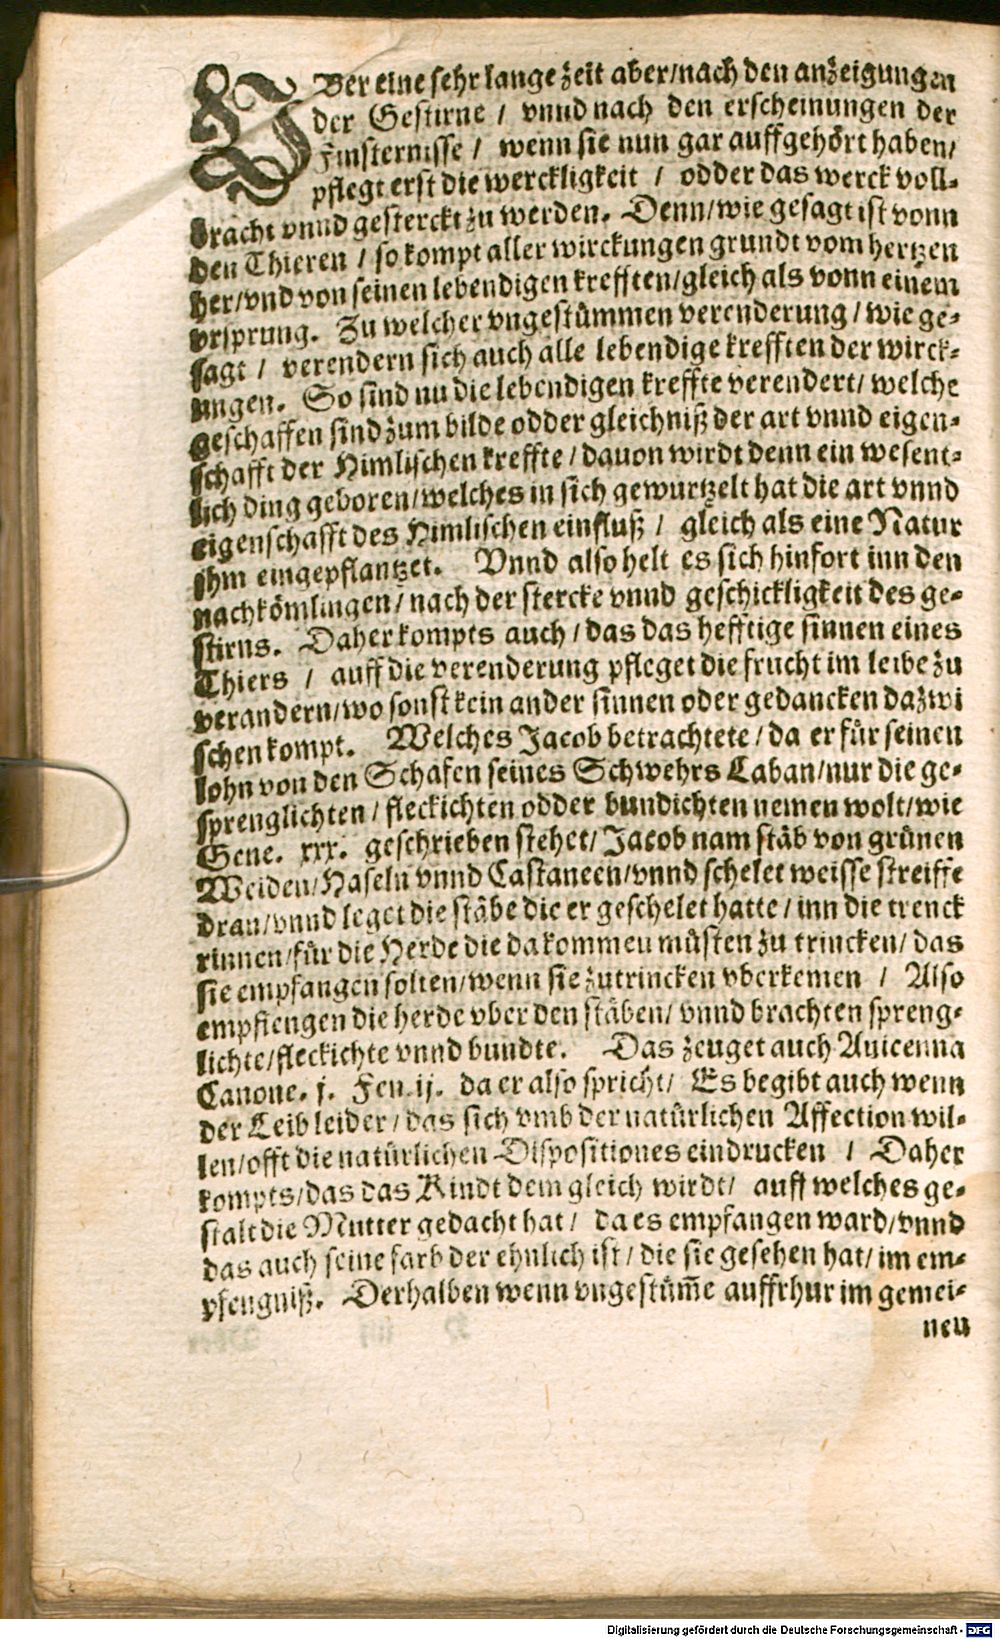 VBer eine sehr lange zeit aber/nach den anzeigungen
der Gestirne / vnnd nach den erscheinungen der
Finsternisse / wenn sie nun gar auffgehört haben/
pflegt erst die werckligkeit / odder das werck voll-
bracht vnnd gesterckt zu werden. Denn/wie gesagt ist vonn
den Thieren / so kompt aller wirckungen grundt vom hertzen
her/vnd von seinen lebendigen krefften/gleich als vonn einem
vrsprung. Zu welcher vngestümmen verenderung / wie ge-
sagt / verendern sich auch alle lebendige krefften der wirck-
ungen. So sind nu die lebendigen kreffte verendert/ welche
geschaffen sind zum bilde odder gleichniß der art vnnd eigen-
schafft der Himlischen kreffte / dauon wirdt denn ein wesent-
lich ding geboren/welches in sich gewurtzelt hat die art vnnd
eigenschafft des Himlischen einfluß / gleich als eine Natur
jhm eingepflantzet. Vnnd also helt es sich hinfort inn den
nachkömlingen / nach der stercke vnnd geschickligkeit des ge-
stirns. Daher kompts auch / das das hefftige sinnen eines
Thiers / auff die verenderung pfleget die frucht im leibe zu
verandern/wo sonst kein ander sinnen oder gedancken dazwi
schen kompt. Welches Jacob betrachtete / da er für seinen
lohn von den Schafen seines Schwehrs Laban/nur die ge-
sprenglichten / fleckichten odder bundichten nemen wolt/wie
Gene. xxx. geschrieben stehet/ Jacob nam stäb von grünen
Weiden/Haseln vnnd Castaneen/vnnd schelet weisse streiffe
dran/vnnd leget die stäbe die er geschelet hatte / inn die trenck
rinnen/für die Herde die da kommen müsten zu trincken/ das
sie empfangen solten/wenn sie zutrincken vberkemen / Also
empfiengen die herde vber den stäben/ vnnd brachten spreng-
lichte/fleckichte vnnd bundte. Das zeuget auch Auicenna
Canone. j. Fen. ij. da er also spricht/ Es begibt auch wenn
der Leib leider / das sich vmb der natürlichen Affection wil-
len/offt die natürlichen Dispositiones eindrucken / Daher
kompts/das das Kindt dem gleich wirdt/ auff welches ge-
stalt die Mutter gedacht hat / da es empfangen ward/vnnd
das auch seine farb der ehnlich ist / die sie gesehen hat/ im em-
pfengniß. Derhalben wenn vngestüm̅e auffrhur im gemei-
nen
Digitalisierung gefördert durch die Deutsche Forschungsgemeinschaft - DFG